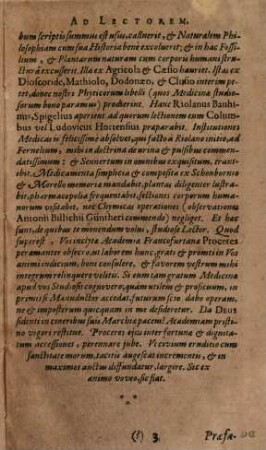 AD LECTOREM.
bum scriptis summus est usus, calluerit, & Naturalem Phi-
losophiam cum sua Historia bene excoluerit; & in hac Fossi-
lium, & Plantarum naturam cum corporu humani stru-
cturâ excusserit. Illa ex Agricola & Cæsio hauriet. Istas ex
Dioscoride, Mathiolo, Dodonæo, & Clusio interim pe-
tet, donec nostri Phyticorum libelli (quos Medicinæ studio-
sorum bono paramus) prodierint. Hanc Riolanus Bauhi-
nus, Spigelius aperient, ad quorum lectionem eum Colum-
bus vel Ludovicus Hortensius præparabit. Institutiones
Medicas is felicissime absolvet, qui facto à Riolano initio, ad
Fernelium, mihi in doctrina de urina & pulsibus commen-
datissimum: & Sennertum in omnibus exquisitum, trans-
ibit. Medicamenta simplicia & composita ex Schonbornio
& Morello memoriæ mandabit, plantas diligenter lustra-
bit, pharmacopolia frequentabit, sectiones corporum huma-
norum visitabit, nec Chymicas operationes (observationes
Antonii Billichii Güntheri commendo) negliget. Et hæc
sunt, de quibus te monendum volui, studiose Lector. Quod
superest, Vos inclytæ Academiæ Francofurtanæ Proceres
peramanter obsecro, ut laborem hunc, gratis & primitiis Vos
animi indicium, bene consulere, & favorem vestrum mihi
integrum relinquere velitis. Si enim tam gratum Medicinæ
apud vos Studiosis cognovero, quàm utilem & proficuum, in
premissi Manuductor accedat, futurum scio dabo operam,
ne & imposterum quicquam in me desideretur. Da Deus
sidenti in cineribus suis Marchiæ pacem! Academiam pristi-
no vigori restitue. Proceres ejus inter fortunæ & dignita-
tum accessiones, perennare jube. Ve civium eruditio cum
sanctitate morum, tacitis augescat incrementis, & in
maximos auctus diffundatur, largire. Sic ex
animo voveo, sic fiat.
* * *
(?) 3 Præfa-